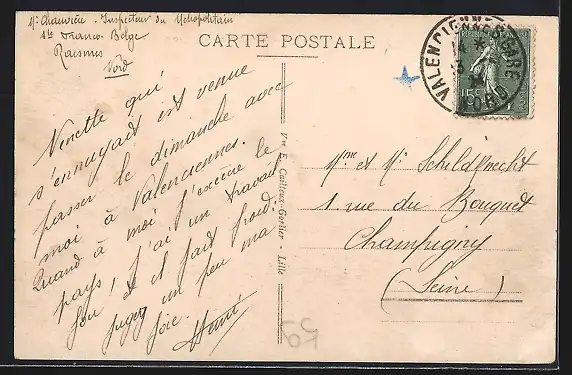 Mr Chauvieu - Inspecteur du Métropolitain
Sté Franco-Belge
Raismes
Nord
CARTE POSTALE
VALENCIENNES GARE
NORD
14 *
RÉPUBLIQUE FRANÇAISE
15c
Ninette qui
s'ennuyait est venue
passer le dimanche avec
moi à Valenciennes.
Quand à moi j'excècre le
pays, j'ai un travail
fou et il fait froid.
jugez un peu ma
joie.
Henri
Vve E. Cailteux-Gorlier - Lille
Mme et Mr Schildknecht
1 rue du Bouquet
Champigny
(Seine)
59